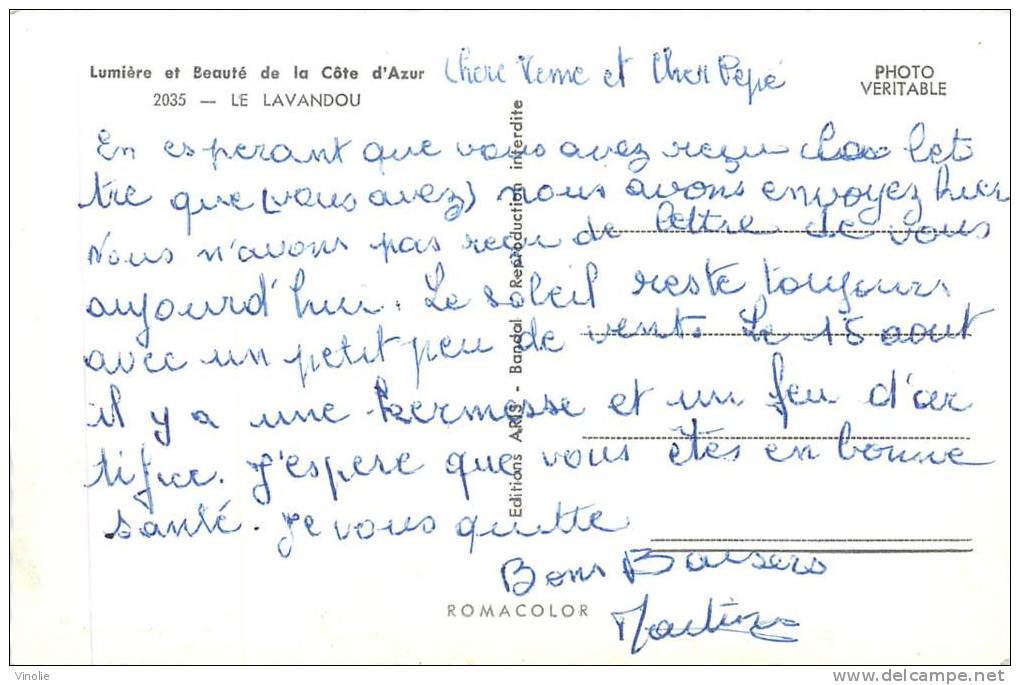 Lumière et Beauté de la Côte d'Azur
2035 — LE LAVANDOU
Chere Meme et Cher Pépé
PHOTO
VERITABLE
En esperant que vous avez reçu la let
tre que (vous avez) nous avons envoyez hier
Nous n'avons pas reçu de lettre de vous
aujourd'hui. Le soleil reste toujours
avec un petit peu de vent. Le 15 aout
il y a une kermesse et un feu d'ar
tifice. J'espere que vous êtes en bonne
santé. Je vous quitte
Bons Baisers
Martine
Editions ARIS - Bandol Reproduction interdite
ROMACOLOR
Vinolie
www.delcampe.net